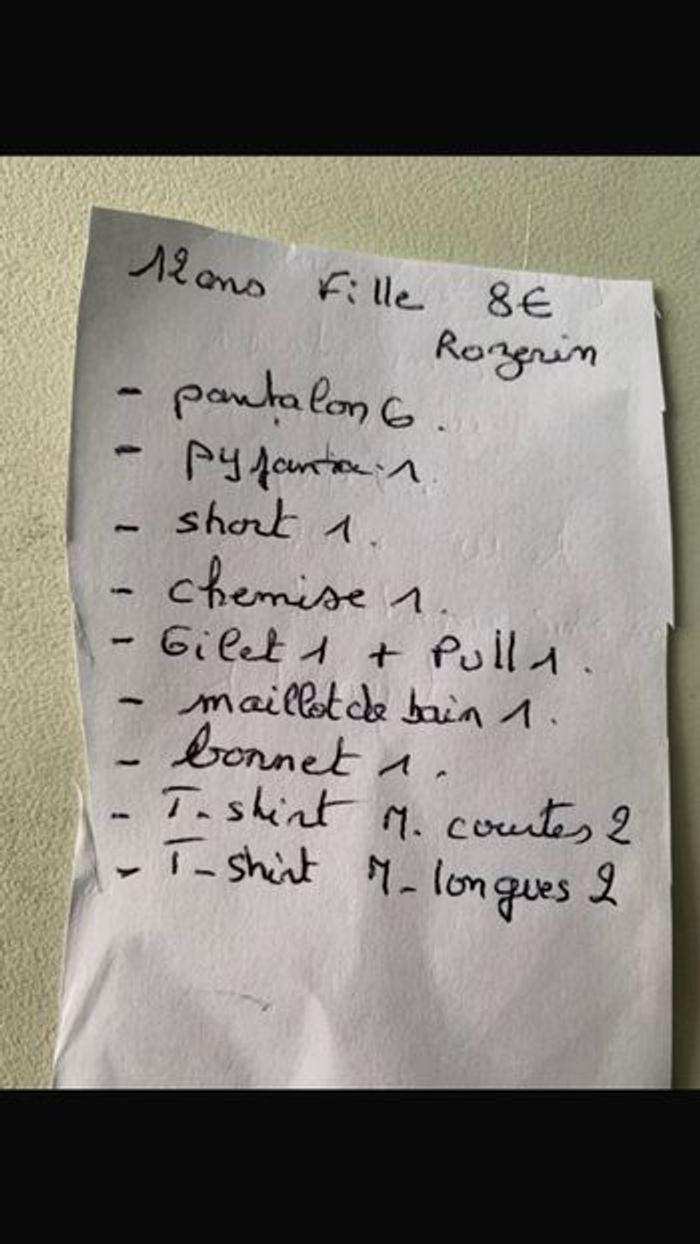 12ans Fille 8€
Rozerin
- pantalon 6.
- pyjama 1.
- short 1.
- chemise 1.
- Gilet 1 + Pull 1.
- maillot de bain 1.
- bonnet 1.
- T-shirt M. courtes 2
- T-shirt M- longues 2